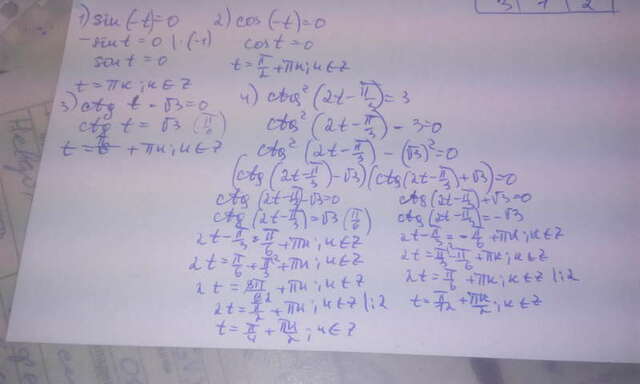 3 1 2
1) sin(-t)=0
-sin t = 0 |·(-1)
sin t = 0
t = πк; к∈Z
2) cos(-t)=0
cos t = 0
t = π/2 + πк; к∈Z
3) ctg t - √3=0
ctg t = √3 (π/6)
t = π/6 + πк; к∈Z
4) ctg² (2t-π/3) = 3
ctg² (2t-π/3) - 3=0
ctg² (2t-π/3) - (√3)²=0
(ctg(2t-π/3)-√3)(ctg(2t-π/3)+√3)=0
ctg(2t-π/3)-√3=0
ctg(2t-π/3)=√3 (π/6)
2t-π/3=π/6+πк; к∈Z
2t=π/6+π/3+πк; к∈Z
2t = 3π/6 + πк; к∈Z
2t=π/2+πк; к∈Z |:2
t=π/4 + πк/2; к∈Z
ctg(2t-π/3)+√3=0
ctg(2t-π/3)=-√3
2t-π/3=-π/6+πк; к∈Z
2t=π/3-π/6+πк; к∈Z
2t=π/6+πк; к∈Z |:2
t=π/12+πк/2; к∈Z